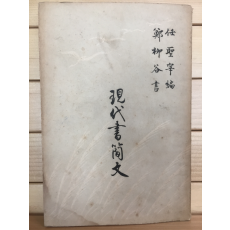 任聖宰編
鄭柳谷書
現代書簡文